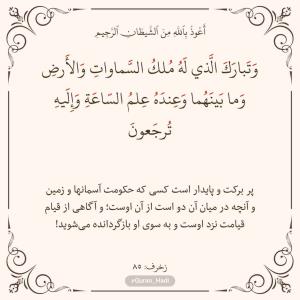 أَعُوذُ بِاللَّهِ مِنَ الشَّيْطَانِ الرَّجِيمِ
وَتَبارَكَ الَّذي لَهُ مُلكُ السَّماواتِ وَالأَرضِ
وَما بَينَهُما وَعِندَهُ عِلمُ السّاعَةِ وَإِلَيهِ
تُرجَعونَ
پر برکت و پایدار است کسی که حکومت آسمانها و زمین
و آنچه در میان آن دو است از آن اوست؛ و آگاهی از قیام
قیامت نزد اوست و به سوی او بازگردانده می‌شوید!
زخرف: ۸۵
@Quran_Hadi